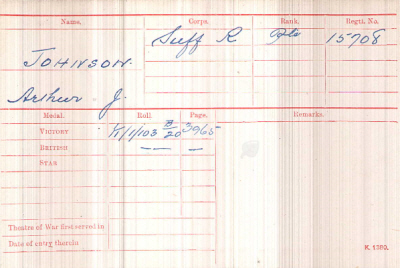 Name. Corps. Rank. Regtl. No.
JOHNSON. Suff R Pte 15708
Arthur J.
Medal. Roll Page. Remarks.
VICTORY K/1/103 B/20 3965
BRITISH — —
STAR
Theatre of War first served in
Date of entry therein
K. 1380.